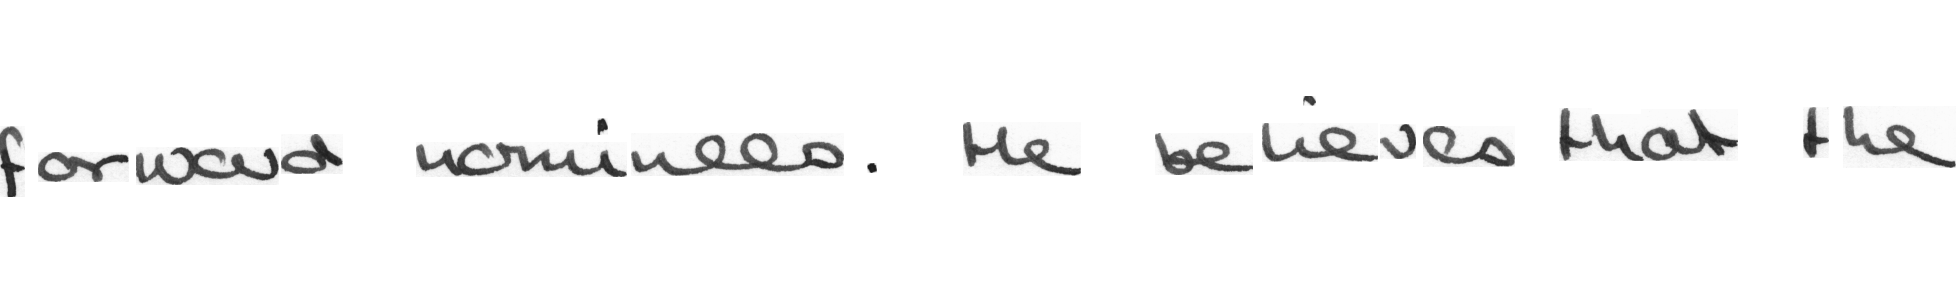 forward nominees. He believes that the